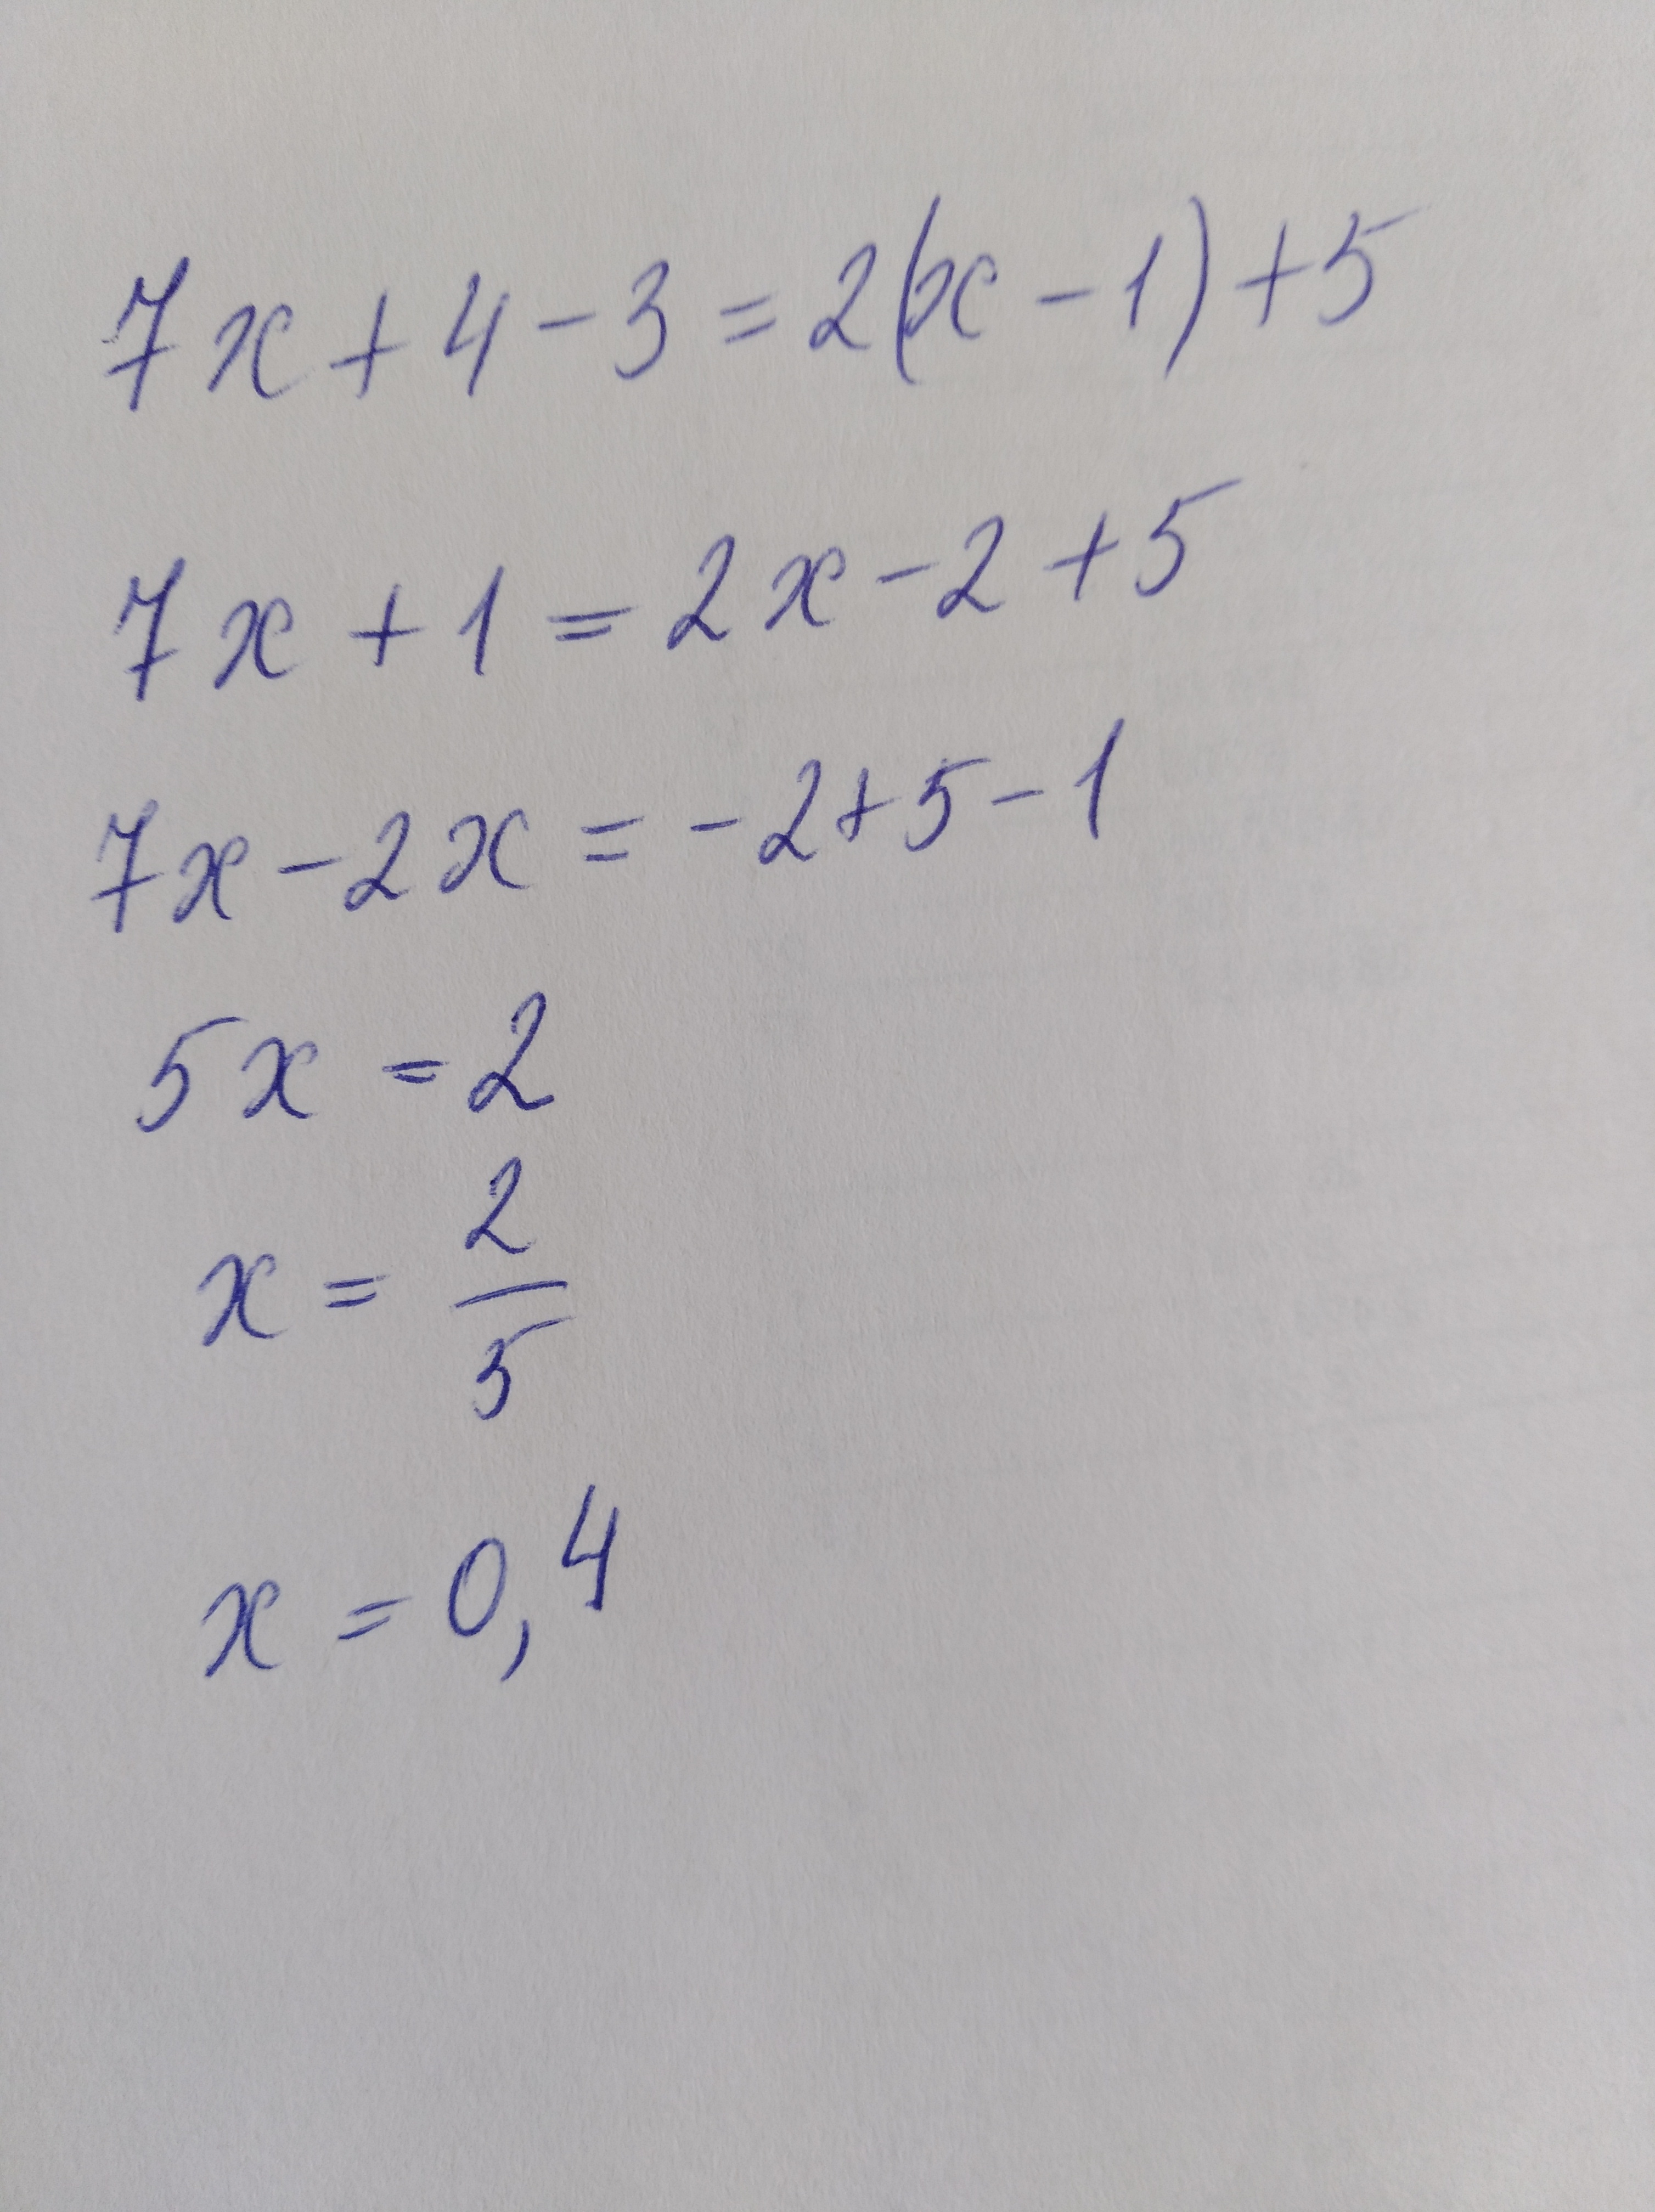 7x + 4 - 3 = 2(x - 1) + 5
7x + 1 = 2x - 2 + 5
7x - 2x = -2 + 5 - 1
5x = 2
x = 2/5
x = 0,4